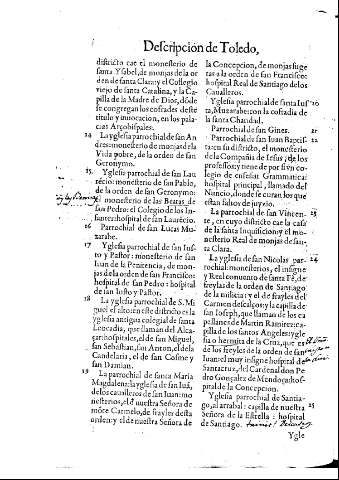 Descripcion de Toledo,
districto cae el monesterio de
santa Ysabel, de monjas de la or
den de santa Clara: y el Collegio
viejo de santa Catalina, y la Ca-
pilla de la Madre de Dios, dõde
se congregan los cofrades deste
titulo y inuocacion, en los pala-
cios Arçobispales.
24 La yglesia parrochial de san An
dres: monesterio de monjas de la
Vida pobre, de la orden de san
Geronymo.
15. Yglesia parrochial de san Lau
rēcio: monesterio de san Pablo,
de la orden de san Geronymo:
el monesterio de las Beatas de
san Pedro: el Colegio de los In-
fantes: hospital de san Laurēcio.
16 Parrochial de san Lucas Mu-
zarabe.
17 Yglesia parrochial de san Ius-
to y Pastor: monesterio de san
Iuan de la Penitencia, de mon-
jas de la orden de san Francisco:
hospital de san Pedro: hospital
de san Iusto y Pastor.
18 La yglesia parrochial de S. Mi
guel el alto: en este districto es la
yglesia antigua colegial de santa
Leocadia, que llaman del Alca-
çar: hospitales, el de san Miguel,
san Sebastian, san Anton, el de la
Candelaria, el de san Cosme y
san Damian.
19 La parrochial de santa Maria
Magdalena: la yglesia de san Iuã,
de los caualleros de san Iuan: mo
nesterios, el de nuestra Señora de
mõte Carmelo, de frayles desta
orden: y el de nuestra Señora de
la Concepcion, de monjas suge
tas a la orden de san Francisco:
hospital Real de Santiago de los
Caualleros.
Yglesia parrochial de santa Ius 20
ta, Muzarabe: con la cofradia de
la santa Charidad.
Parrochial de san Gines. 21
Parrochial de san Iuan Baptis- 22
ta: en su districto, el monesterio
de la Compañia de Iesus, de los
professos; y tiene de por si vn co
legio de enseñar Grammatica:
hospital principal, llamado del
Nuncio, donde se curan los que
estan faltos de juyzio.
La parrochial de san Vincen- 23
te, en cuyo districto cae la casa
de la santa Inquisicion: y el mo-
nesterio Real de monjas de san-
ta Clara.
La yglesia de san Nicolas par- 24
rochial: monesterios, el insigne
y Reel conuento de santa Fè, de
freylas de la orden de Santiago
de la milicia: y el de frayles del
Carmen descalços: y la capilla de
san Ioseph, que llaman de los ca
pellanes de Martin Ramirez: ca
pilla de los santos Angeles: ygle
sia o hermita de la Cruz, que es
de los freyles de la orden de san
Iuan: el muy insigne hospital de
Santa cruz, del Cardenal don Pe
dro Gonzalez de Mendoça: hos
pital de la Concepcion.
Yglesia parrochial de Santia- 25
go, al arrabal: capilla de nuestra
Señora de la Estrella: hospital
de Santiago.
Ygle